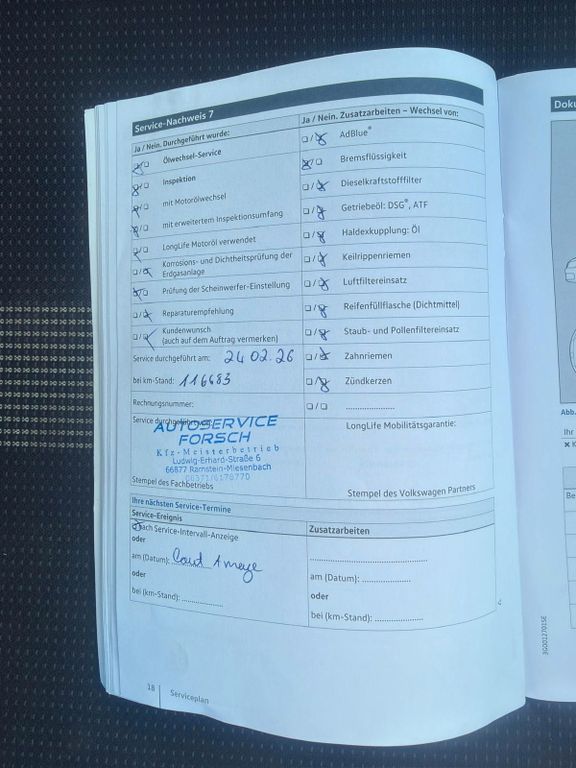 Service-Nachweis 7
Ja / Nein. Durchgeführt wurde:
☒/☐ Ölwechsel-Service
☒/☐ Inspektion
☒/☐ mit Motorölwechsel
☒/☐ mit erweitertem Inspektionsumfang
☒/☐ LongLife Motoröl verwendet
☐/☒ Korrosions- und Dichtheitsprüfung der
Erdgasanlage
☒/☐ Prüfung der Scheinwerfer-Einstellung
☐/☒ Reparaturempfehlung
☐/☒ Kundenwunsch
(auch auf dem Auftrag vermerken)
Service durchgeführt am: 24 02.26
bei km-Stand: 116683
Rechnungsnummer:
Service durchgeführt von:
AUTOSERVICE
FORSCH
Kfz-Meisterbetrieb
Ludwig-Erhard-Straße 6
66877 Ramstein-Miesenbach
06371/6176770
Stempel des Fachbetriebs
Ja / Nein. Zusatzarbeiten – Wechsel von:
☐/☒ AdBlue®
☒/☐ Bremsflüssigkeit
☐/☒ Dieselkraftstofffilter
☐/☒ Getriebeöl: DSG®, ATF
☐/☒ Haldexkupplung: Öl
☐/☒ Keilrippenriemen
☐/☒ Luftfiltereinsatz
☐/☒ Reifenfüllflasche (Dichtmittel)
☐/☒ Staub- und Pollenfiltereinsatz
☐/☒ Zahnriemen
☐/☒ Zündkerzen
☐/☐ ....................
LongLife Mobilitätsgarantie:
Stempel des Volkswagen Partners
Ihre nächsten Service-Termine
Service-Ereignis
Nach Service-Intervall-Anzeige
oder
am (Datum): laut
oder
bei (km-Stand): ................
Zusatzarbeiten
........................................
am (Datum): ................
oder
bei (km-Stand): ................
18 Serviceplan
Doku
Abb.
Ihr
Be
3G0012701SE